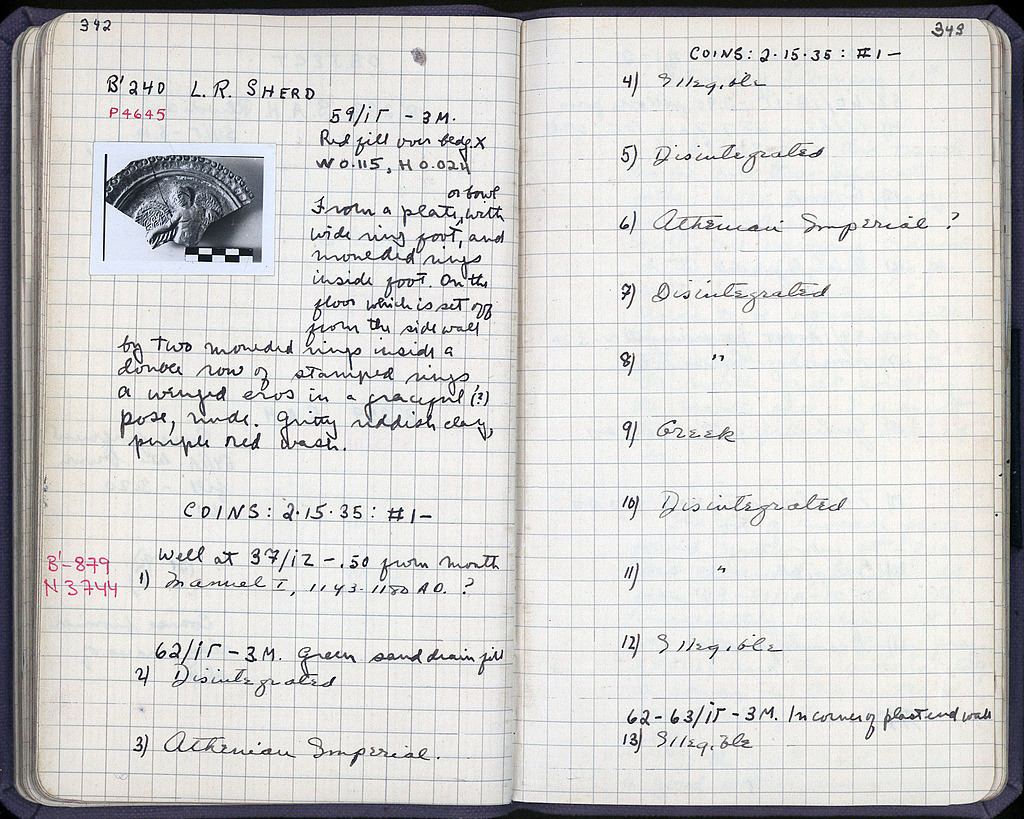 342
B'240 L.R. SHERD
P4645
59/ΙΓ - 3M.
Red fill over bedg. X
W 0.115, H 0.024
or bowl
From a plate, with
wide ring foot, and
moulded rings
inside foot. On the
floor which is set off
from the side wall
by two moulded rings inside a
double row of stamped rings
a winged eros in a graceful (?)
pose, nude. Gritty reddish clay,
purple red wash.
COINS: 2·15·35: #1-
Well at 37/ΙΖ -.50 from mouth
B'-879
N 3744
1) Manuel I, 1143-1180 A.D. ?
62/ΙΓ - 3M. Green sand drain fill
2) Disintegrated
3) Athenian Imperial.
343
COINS: 2·15·35: #1-
4) Illegible
5) Disintegrated
6) Athenian Imperial ?
7) Disintegrated
8) "
9) Greek
10) Disintegrated
11) "
12) Illegible
62-63/ΙΓ - 3M. In corner of plastered wall
13) Illegible